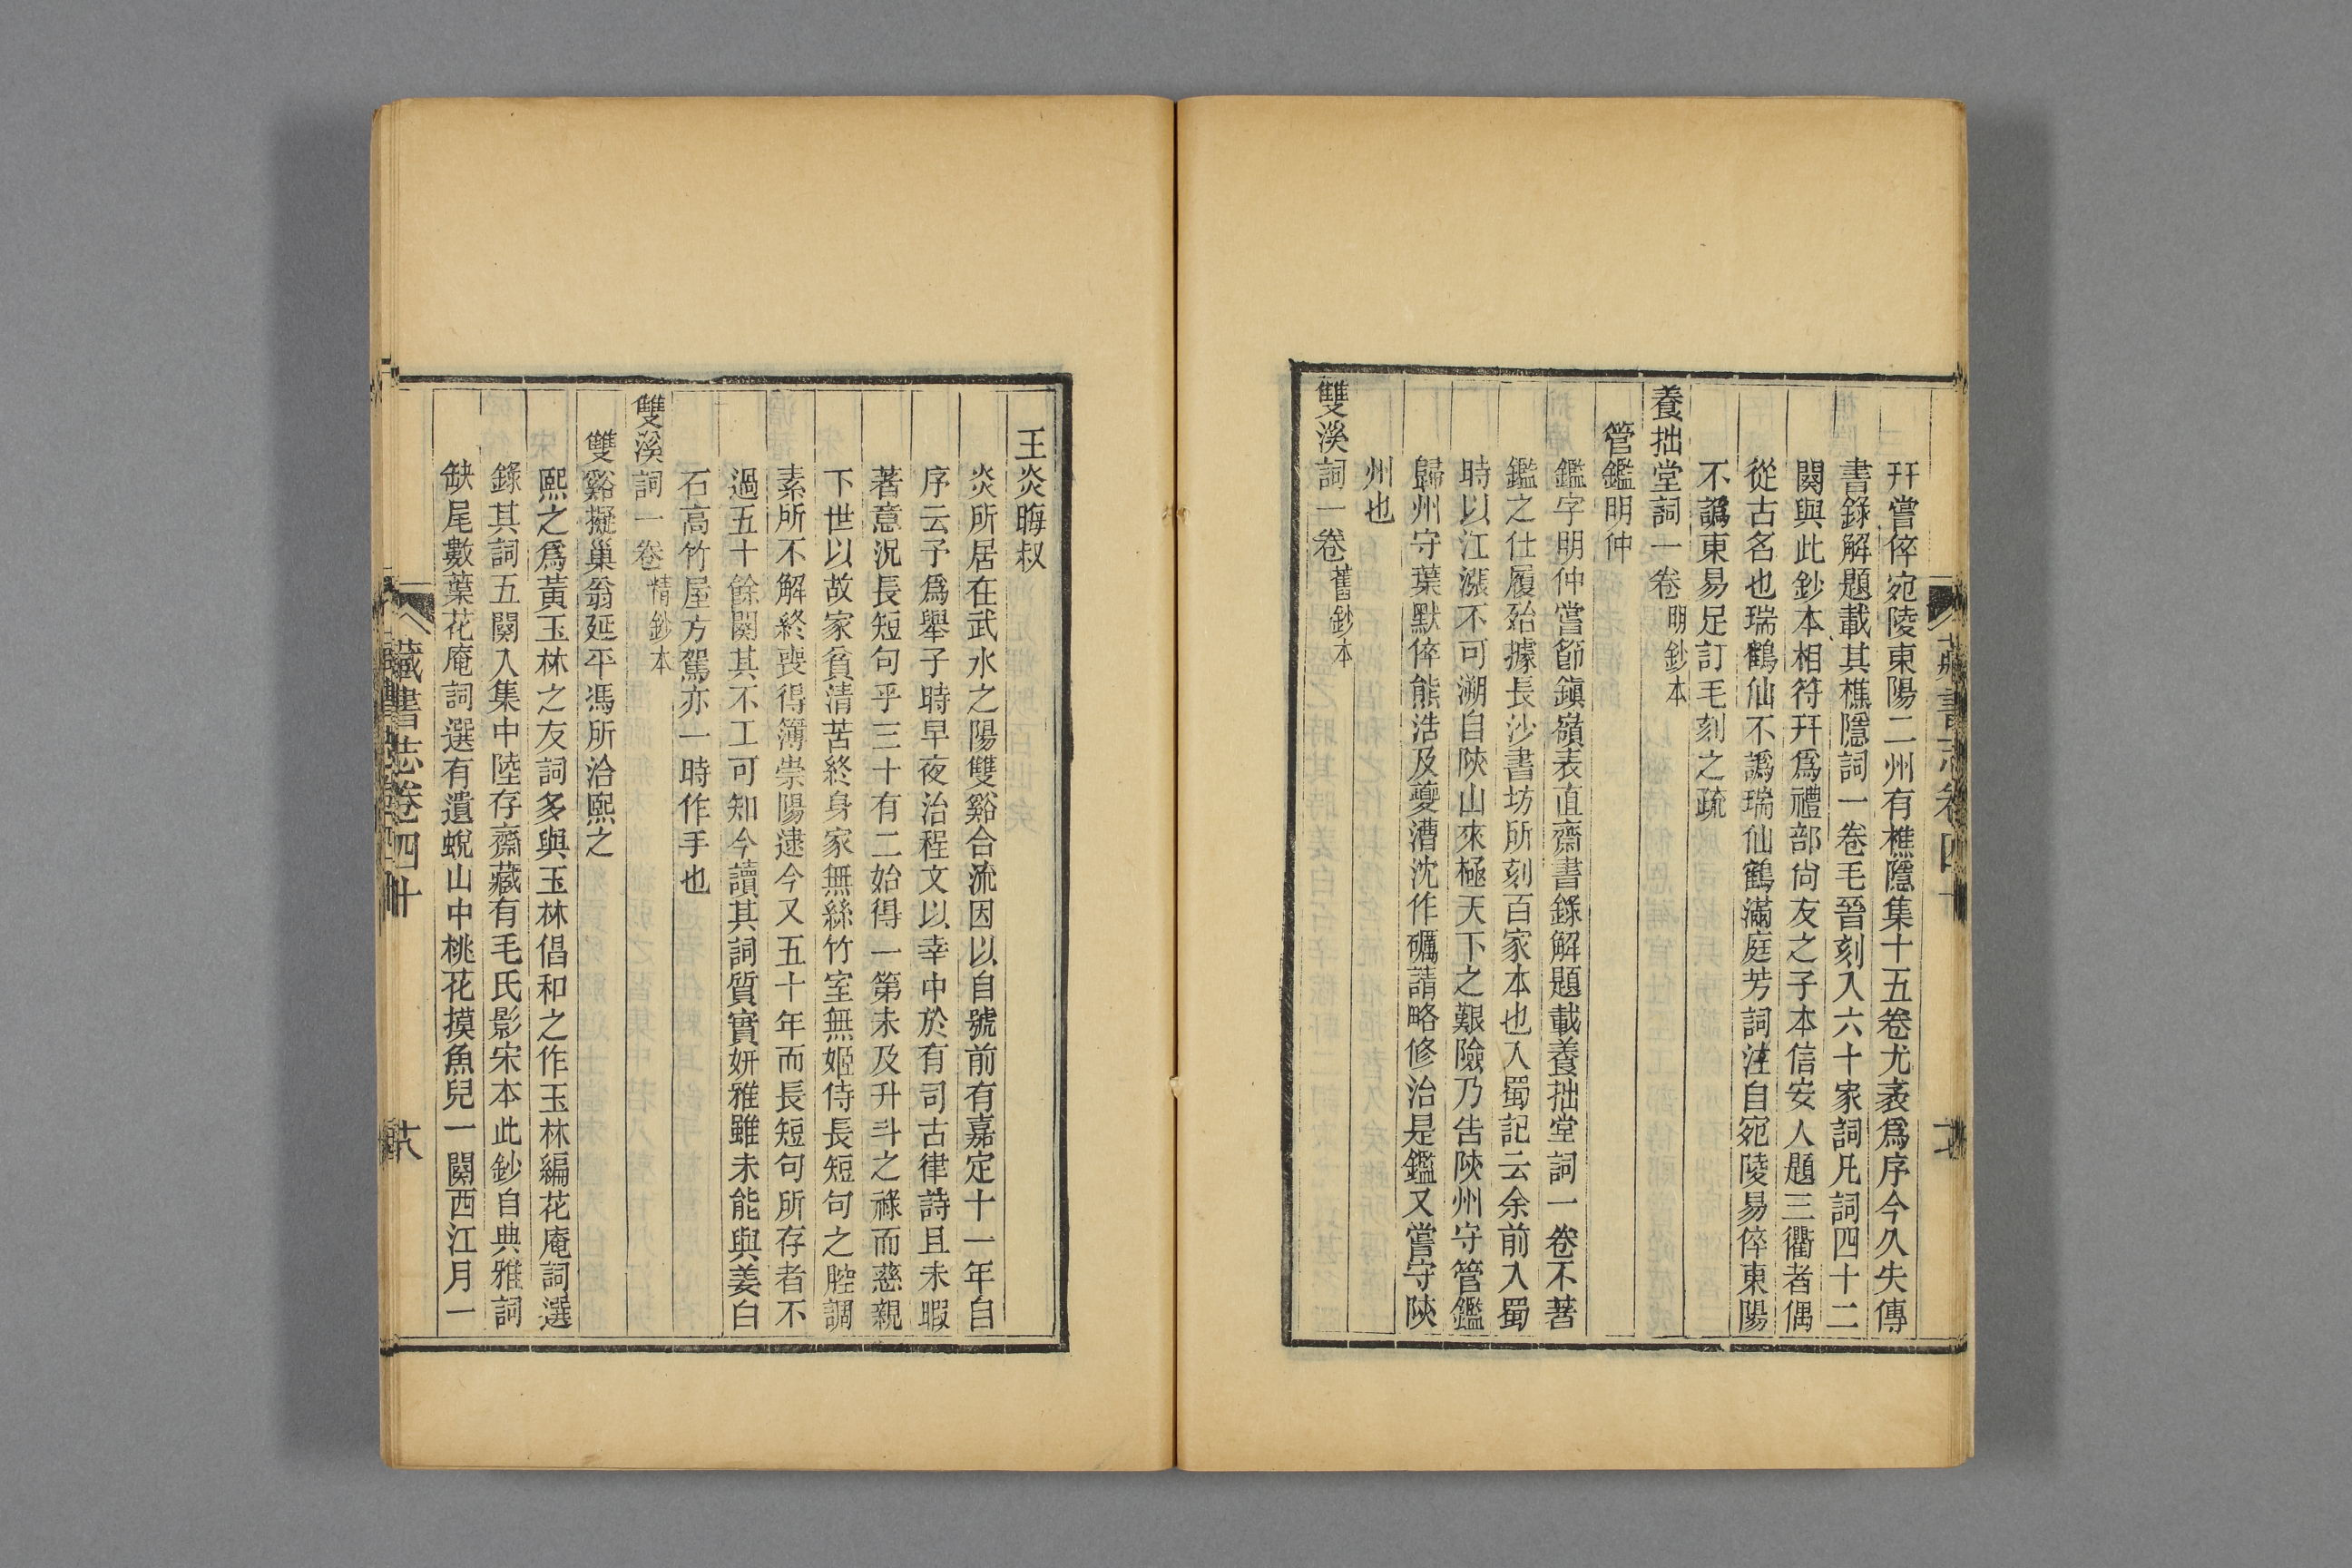 藏書志卷四十
幵嘗倅宛陵東陽二州有樵隱集十五卷尤袤爲序今久失傳
書錄解題載其樵隱詞一卷毛晉刻入六十家詞凡詞四十二
闋與此鈔本相符幵爲禮部尙友之子本信安人題三衢者偶
從古名也瑞鶴仙不譌瑞仙鶴滿庭芳詞注自宛陵易倅東陽
不譌東易足訂毛刻之疏
養拙堂詞一卷 明鈔本
管鑑明仲
鑑字明仲嘗節鎭嶺表直齋書錄解題載養拙堂詞一卷不著
鑑之仕履殆據長沙書坊所刻百家本也入蜀記云余前入蜀
時以江漲不可溯自陝山來極天下之艱險乃告陝州守管鑑
歸州守葉默倅熊浩及夔漕沈作礪請略修治是鑑又嘗守陝
州也
雙溪詞一卷 舊鈔本
王炎晦叔
炎所居在武水之陽雙谿合流因以自號前有嘉定十一年自
序云予爲舉子時早夜治程文以幸中於有司古律詩且未暇
著意況長短句乎三十有二始得一第未及升斗之祿而慈親
下世以故家貧淸苦終身家無絲竹室無姬侍長短句之腔調
素所不解終喪得簿崇陽逮今又五十年而長短句所存者不
過五十餘闋其不工可知今讀其詞質實妍雅雖未能與姜白
石高竹屋方駕亦一時作手也
雙溪詞一卷 精鈔本
雙谿擬巢翁延平馮所洽熙之
熙之爲黃玉林之友詞多與玉林倡和之作玉林編花庵詞選
錄其詞五闋入集中陸存齋藏有毛氏影宋本此鈔自典雅詞
缺尾數葉花庵詞選有遺蛻山中桃花摸魚兒一闋西江月一
藏書志卷四十